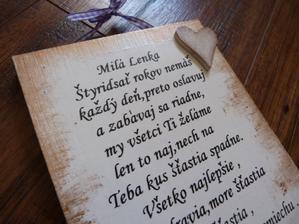 Milá Lenka
Štyridsať rokov nemáš
každý deň, preto oslavuj
a zabávaj sa riadne,
my všetci Ti želáme
len to naj, nech na
Teba kus šťastia spadne.
Všetko najlepšie,
zdravia, more šťastia